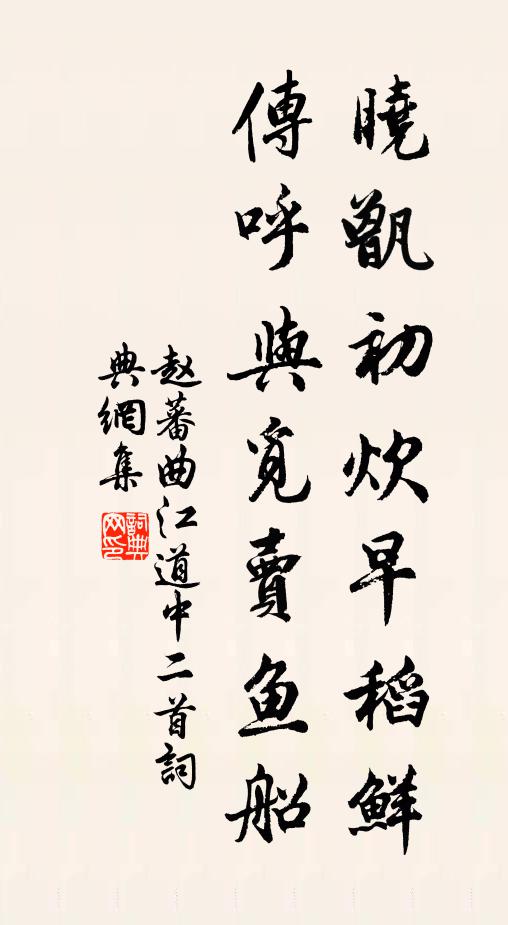 曉甑初炊早稻鮮
傳呼與覓賣魚船
赵蕃曲江道中二首詞
典網集
詞典網印